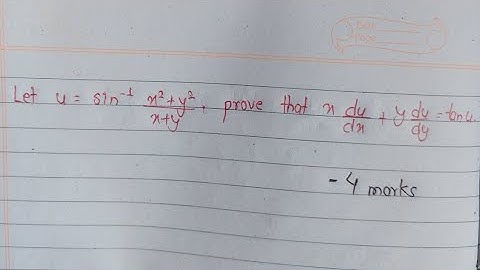 Let u = sin⁻¹ (x²+y²)/(x+y), prove that x du/dx + y du/dy = tan u.
- 4 marks